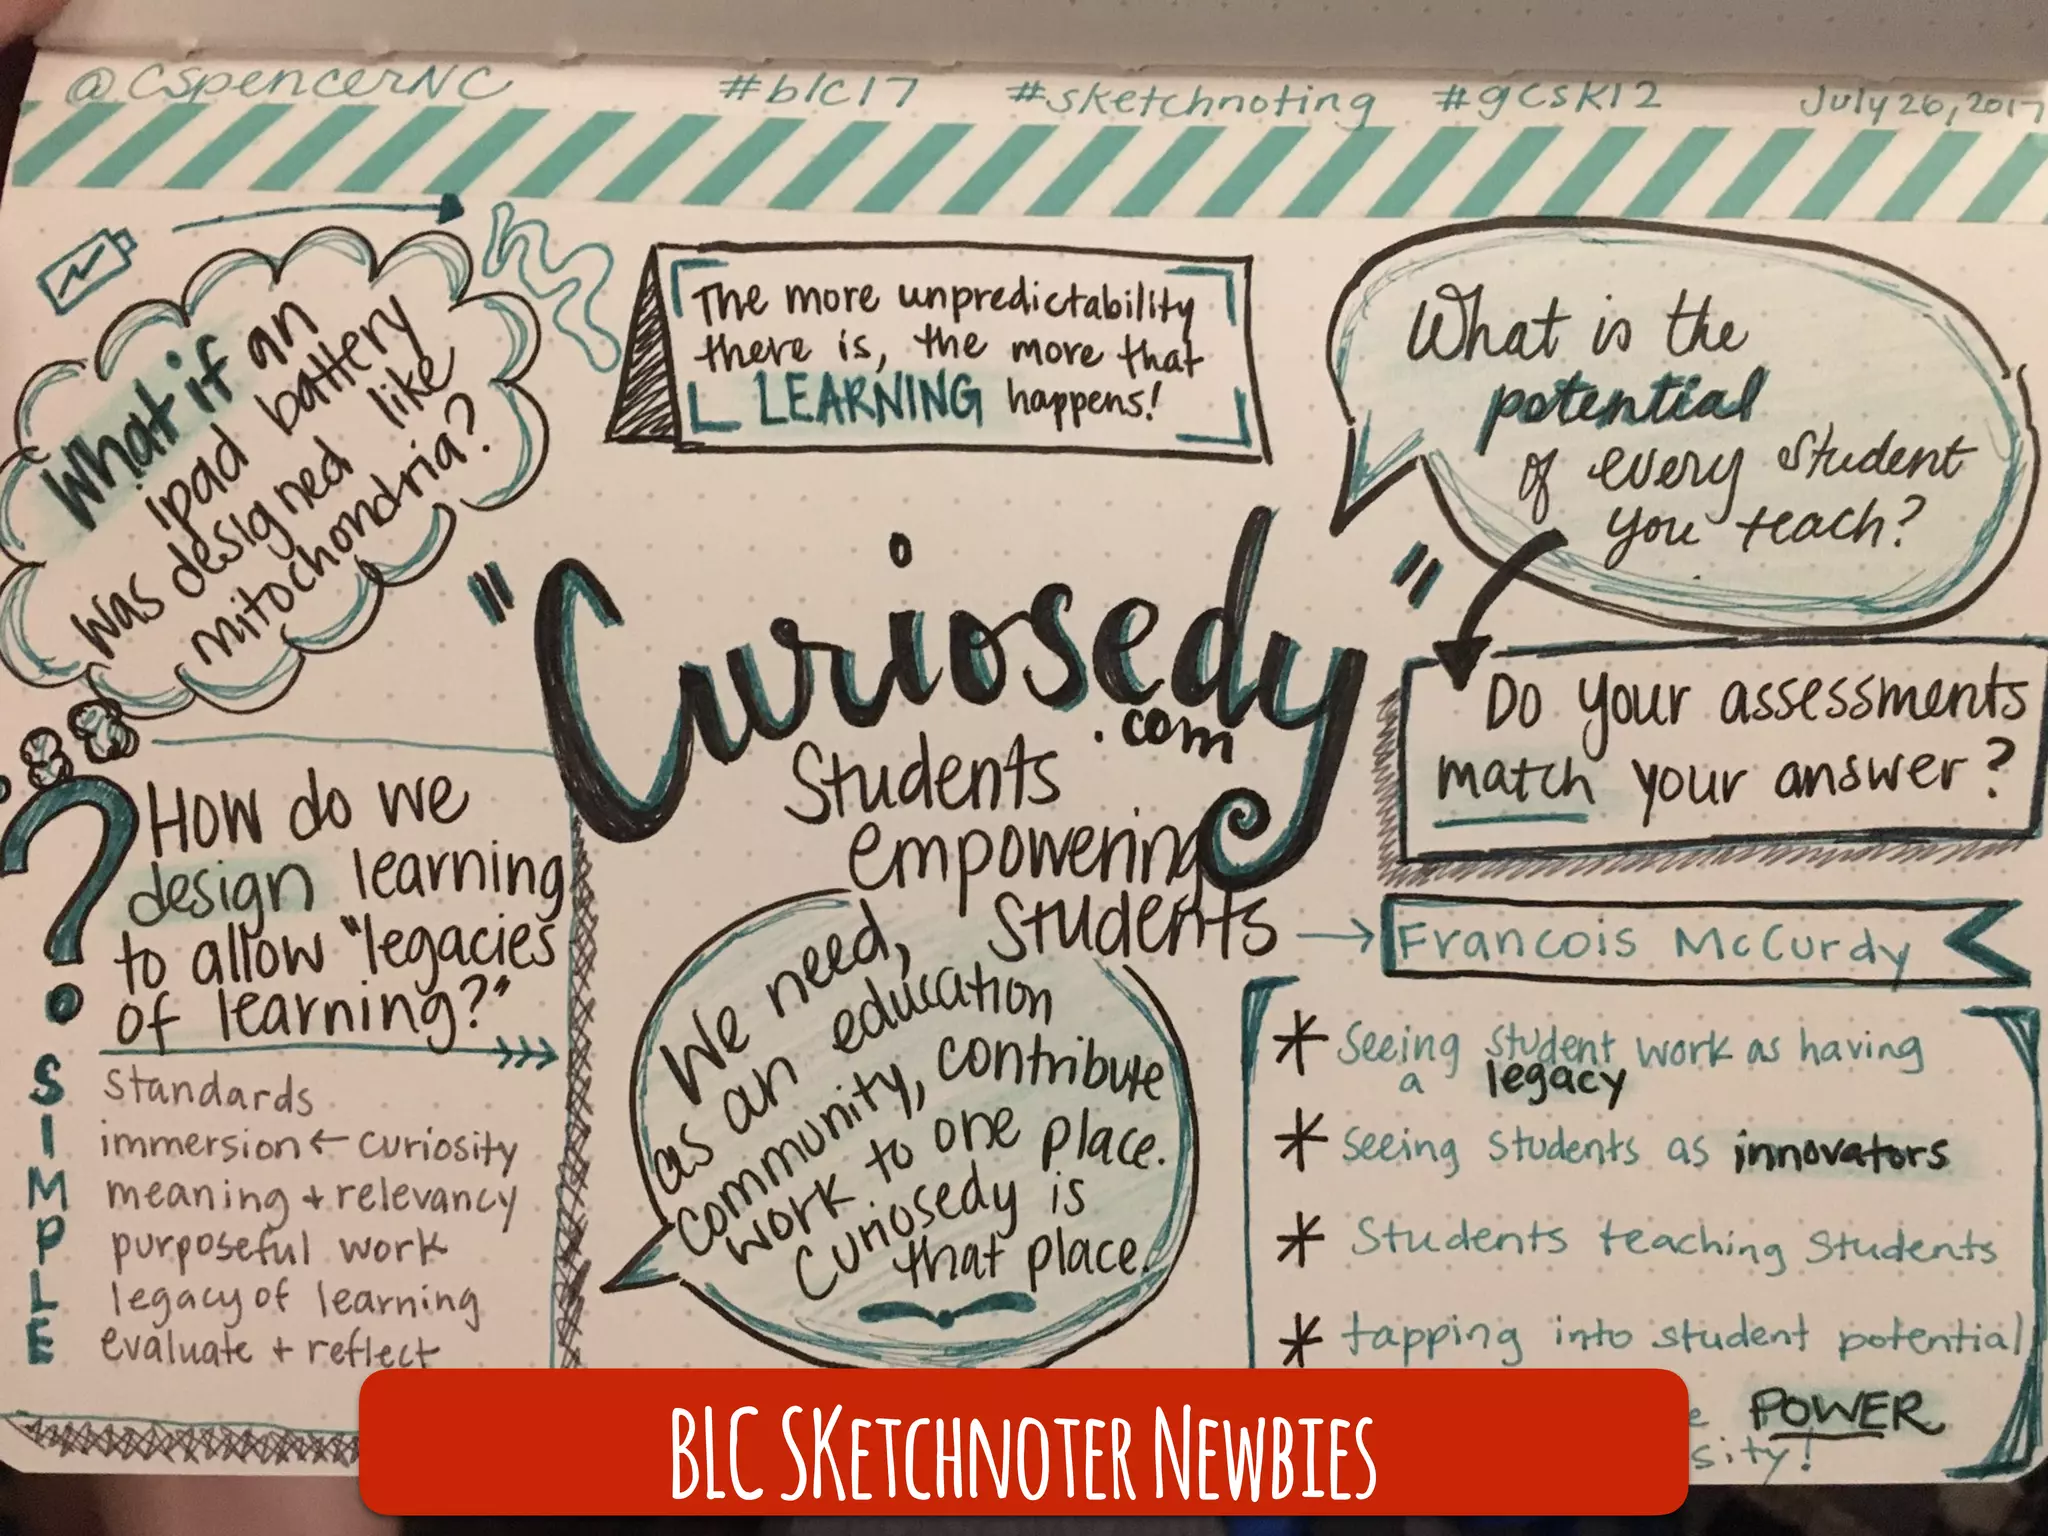 @CSpencerNC #blc17 #sketchnoting #gcsk12 July 26, 2017
What if an
ipad battery
was designed like
mitochondria?
The more unpredictability
there is, the more that
LEARNING happens!
What is the
potential
of every student
you teach?
Do your assessments
match your answer?
"Curiosedy"
.com
Students
empowering
students
Francois McCurdy
? How do we
design learning
to allow "legacies
of learning?"
SIMPLE
Standards
immersion ← curiosity
meaning + relevancy
purposeful work
legacy of learning
evaluate + reflect
We need,
as an education
community, contribute
work to one place.
Curiosedy is
that place.
* Seeing student work as having
a legacy
* Seeing students as innovators
* Students teaching students
* tapping into student potential
POWER
sity!
BLC SKetchnoter Newbies